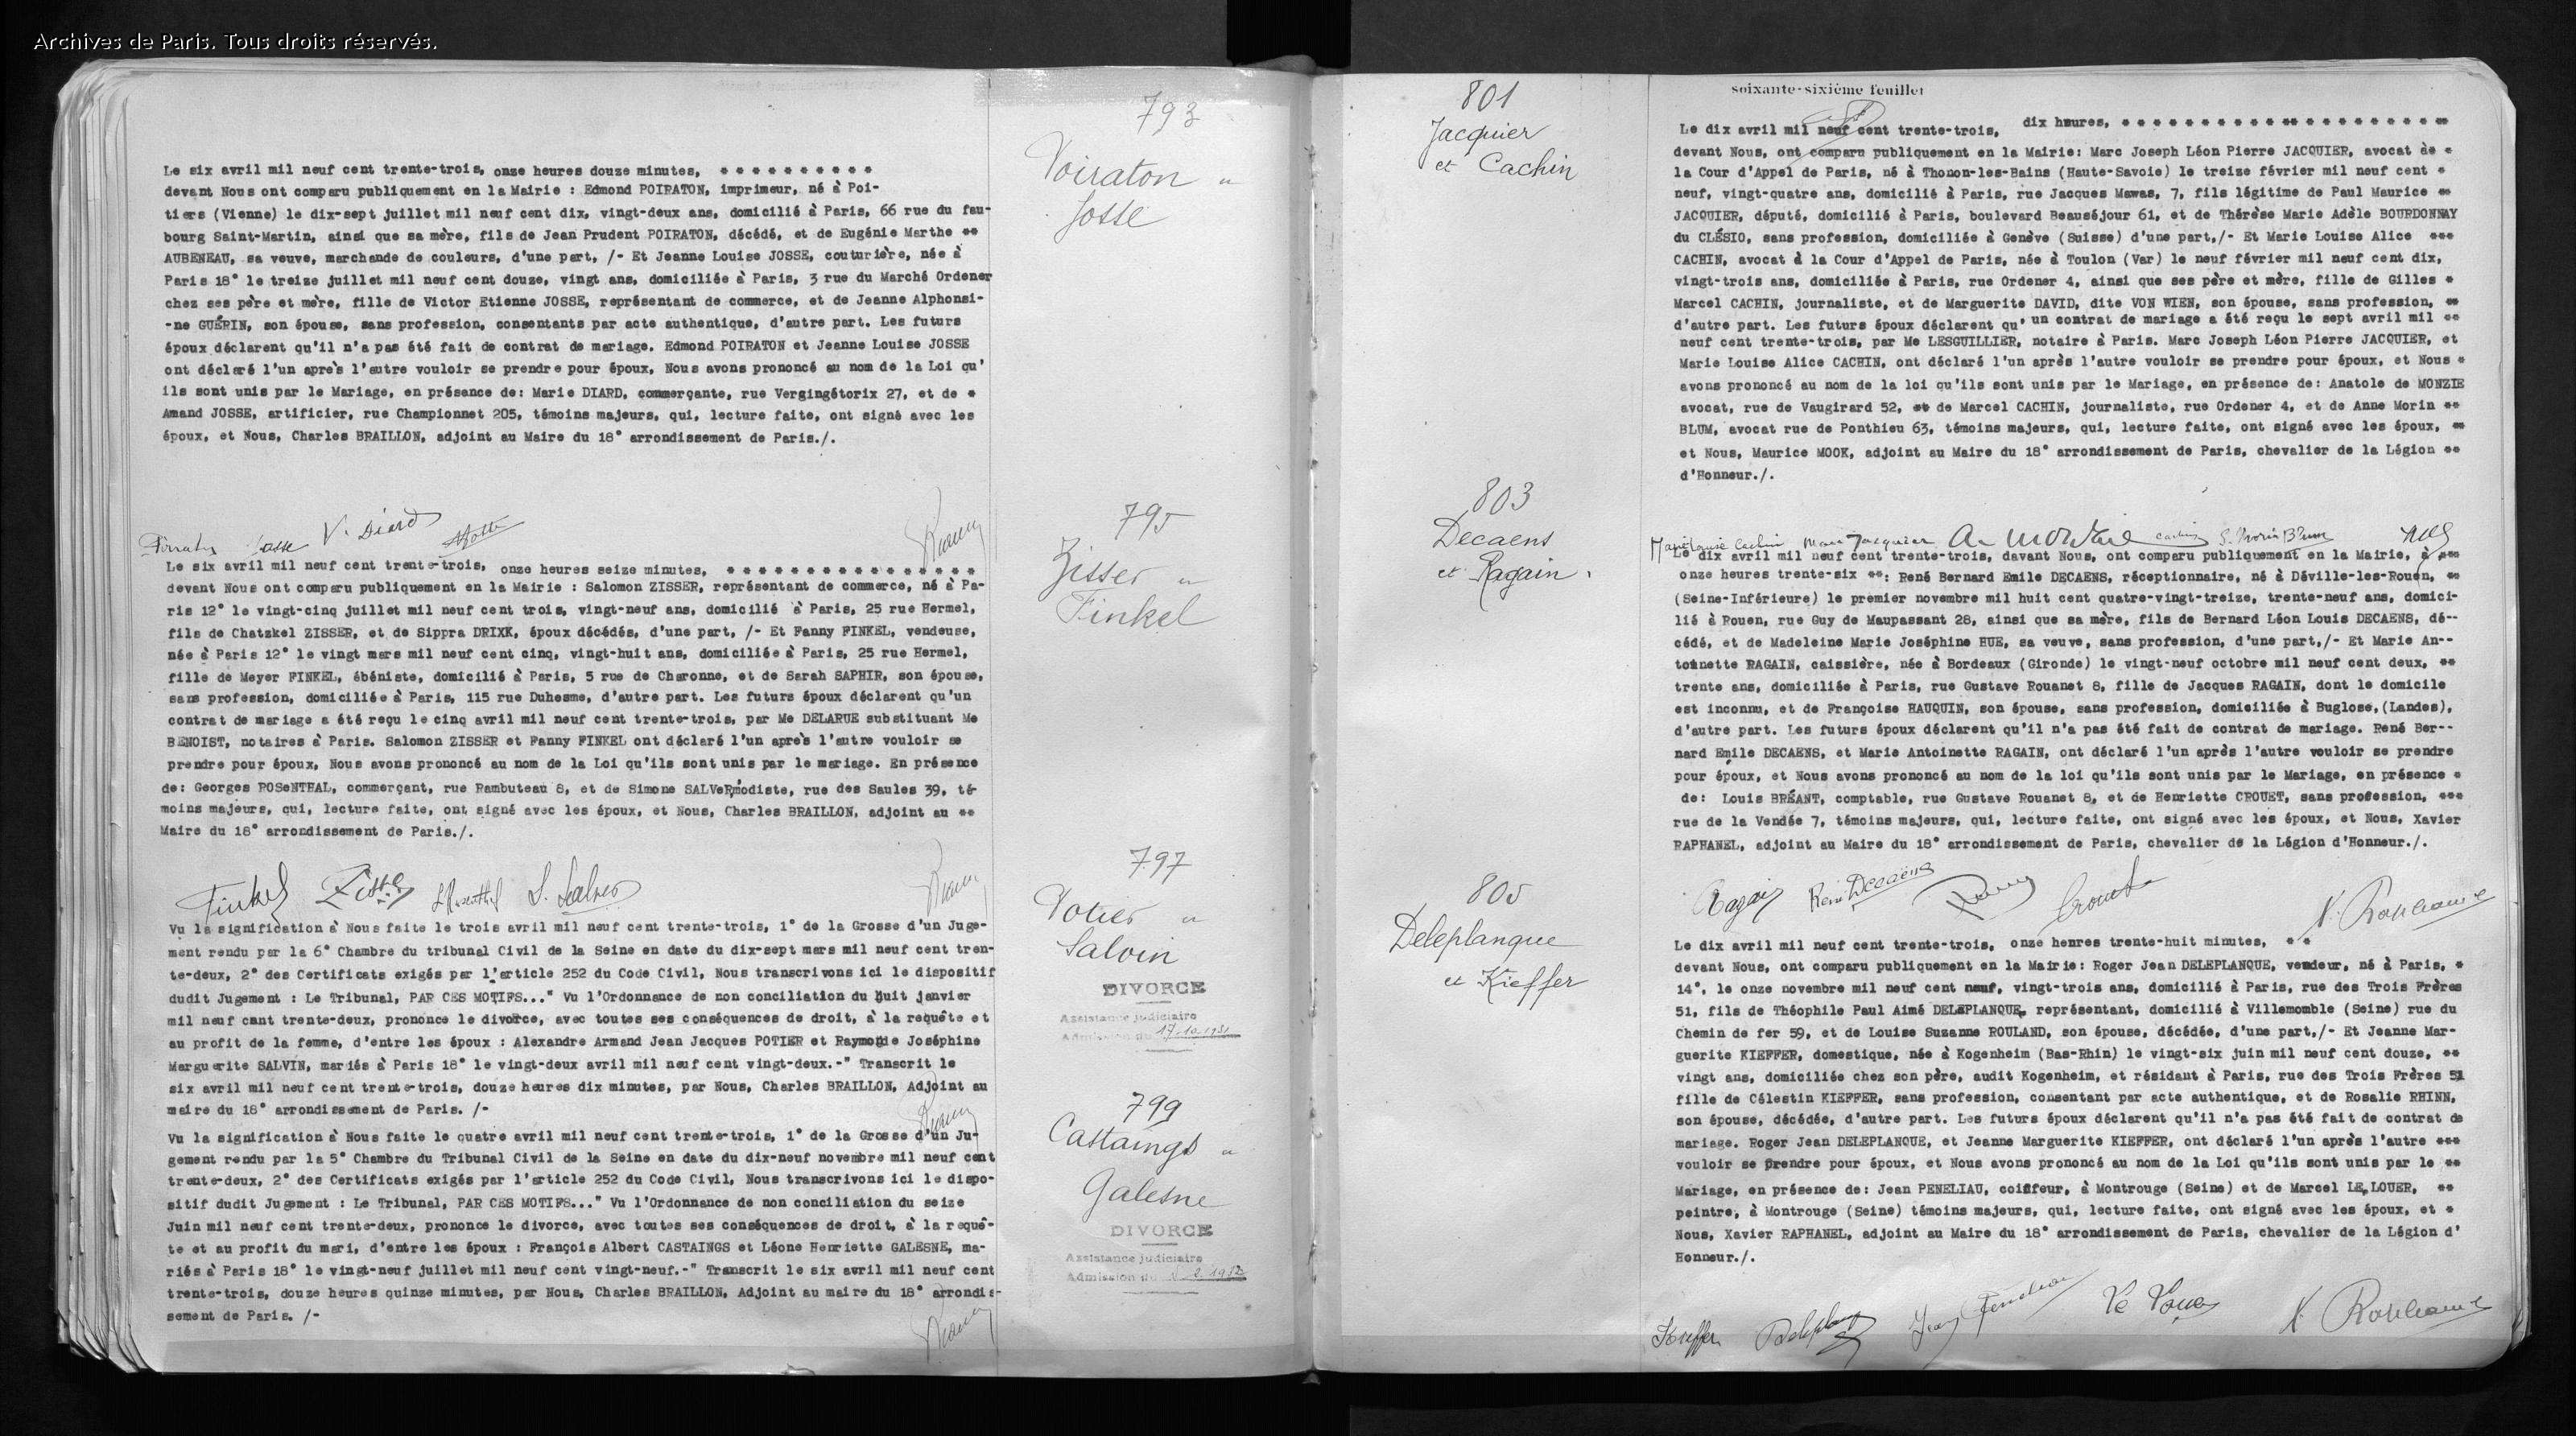 Archives de Paris. Tous droits réservés.
793
Poiraton &
Josse
Le six avril mil neuf cent trente-trois, onze heures douze minutes, * * * * * * * * * *
devant Nous ont comparu publiquement en la Mairie : Edmond POIRATON, imprimeur, né à Poi-
tiers (Vienne) le dix-sept juillet mil neuf cent dix, vingt-deux ans, domicilié à Paris, 66 rue du fau-
bourg Saint-Martin, ainsi que sa mère, fils de Jean Prudent POIRATON, décédé, et de Eugénie Marthe **
AUBENEAU, sa veuve, marchande de couleurs, d'une part, /- Et Jeanne Louise JOSSE, couturière, née à
Paris 18° le treize juillet mil neuf cent douze, vingt ans, domiciliée à Paris, 3 rue du Marché Ordener
chez ses père et mère, fille de Victor Etienne JOSSE, représentant de commerce, et de Jeanne Alphonsi-
-ne GUÉRIN, son épouse, sans profession, consentants par acte authentique, d'autre part. Les futurs
époux déclarent qu'il n'a pas été fait de contrat de mariage. Edmond POIRATON et Jeanne Louise JOSSE
ont déclaré l'un après l'autre vouloir se prendre pour époux, Nous avons prononcé au nom de la Loi qu'
ils sont unis par le Mariage, en présence de: Marie DIARD, commerçante, rue Vergingétorix 27, et de *
Amand JOSSE, artificier, rue Championnet 205, témoins majeurs, qui, lecture faite, ont signé avec les
époux, et Nous, Charles BRAILLON, adjoint au Maire du 18° arrondissement de Paris./.
Josse V. Diard
795
Zisser &
Finkel
Le six avril mil neuf cent trente-trois, onze heures seize minutes, * * * * * * * * * * * * * * * *
devant Nous ont comparu publiquement en la Mairie : Salomon ZISSER, représentant de commerce, né à Pa-
ris 12° le vingt-cinq juillet mil neuf cent trois, vingt-neuf ans, domicilié à Paris, 25 rue Hermel,
fils de Chatzkel ZISSER, et de Sippra DRIXK, époux décédés, d'une part, /- Et Fanny FINKEL, vendeuse,
née à Paris 12° le vingt mars mil neuf cent cinq, vingt-huit ans, domiciliée à Paris, 25 rue Hermel,
fille de Meyer FINKEL, ébéniste, domicilié à Paris, 5 rue de Charonne, et de Sarah SAPHIR, son épouse,
sans profession, domiciliée à Paris, 115 rue Duhesme, d'autre part. Les futurs époux déclarent qu'un
contrat de mariage a été reçu le cinq avril mil neuf cent trente-trois, par Me DELARUE substituant Me
BENOIST, notaires à Paris. Salomon ZISSER et Fanny FINKEL ont déclaré l'un après l'autre vouloir se
prendre pour époux, Nous avons prononcé au nom de la Loi qu'ils sont unis par le mariage. En présence
de: Georges ROSeNTHAL, commerçant, rue Rambuteau 8, et de Simone SALVeR,modiste, rue des Saules 39, té-
moins majeurs, qui, lecture faite, ont signé avec les époux, et Nous, Charles BRAILLON, adjoint au **
Maire du 18° arrondissement de Paris./.
Finkel Zisser S. Salver
797
Potier &
Salvin
DIVORCE
Assistance judiciaire
Admission du 17-10-1931
Vu la signification à Nous faite le trois avril mil neuf cent trente-trois, 1° de la Grosse d'un Juge-
ment rendu par la 6° Chambre du tribunal Civil de la Seine en date du dix-sept mars mil neuf cent tren-
te-deux, 2° des Certificats exigés par l'article 252 du Code Civil, Nous transcrivons ici le dispositif
dudit Jugement : Le Tribunal, PAR CES MOTIFS..." Vu l'Ordonnance de non conciliation du huit janvier
mil neuf cent trente-deux, prononce le divorce, avec toutes ses conséquences de droit, à la requête et
au profit de la femme, d'entre les époux : Alexandre Armand Jean Jacques POTIER et Raymonde Joséphine
Marguerite SALVIN, mariés à Paris 18° le vingt-deux avril mil neuf cent vingt-deux.-" Transcrit le
six avril mil neuf cent trente-trois, douze heures dix minutes, par Nous, Charles BRAILLON, Adjoint au
maire du 18° arrondissement de Paris. /-
799
Castaings &
Galesne
DIVORCE
Assistance judiciaire
Admission du
Vu la signification à Nous faite le quatre avril mil neuf cent trente-trois, 1° de la Grosse d'un Ju-
gement rendu par la 5° Chambre du Tribunal Civil de la Seine en date du dix-neuf novembre mil neuf cent
trente-deux, 2° des Certificats exigés par l'article 252 du Code Civil, Nous transcrivons ici le dispo-
sitif dudit Jugement : Le Tribunal, PAR CES MOTIFS..." Vu l'Ordonnance de non conciliation du seize
Juin mil neuf cent trente-deux, prononce le divorce, avec toutes ses conséquences de droit, à la requê-
te et au profit du mari, d'entre les époux : François Albert CASTAINGS et Léone Henriette GALESNE, ma-
riés à Paris 18° le vingt-neuf juillet mil neuf cent vingt-neuf.-" Transcrit le six avril mil neuf cent
trente-trois, douze heures quinze minutes, par Nous, Charles BRAILLON, Adjoint au maire du 18° arrondis-
sement de Paris. /-
soixante-sixième feuillet
801
Jacquier
et Cachin
Le dix avril mil neuf cent trente-trois, dix heures, * * * * * * * * * * * * * * * * * * * *
devant Nous, ont comparu publiquement en la Mairie: Marc Joseph Léon Pierre JACQUIER, avocat à* *
la Cour d'Appel de Paris, né à Thonon-les-Bains (Haute-Savoie) le treize février mil neuf cent *
neuf, vingt-quatre ans, domicilié à Paris, rue Jacques Mawas, 7, fils légitime de Paul Maurice **
JACQUIER, député, domicilié à Paris, boulevard Beauséjour 61, et de Thérèse Marie Adèle BOURDONNAY
du CLÉSIO, sans profession, domiciliée à Genève (Suisse) d'une part,/- Et Marie Louise Alice ***
CACHIN, avocat à la Cour d'Appel de Paris, née à Toulon (Var) le neuf février mil neuf cent dix,
vingt-trois ans, domiciliée à Paris, rue Ordener 4, ainsi que ses père et mère, fille de Gilles *
Marcel CACHIN, journaliste, et de Marguerite DAVID, dite VON WIEN, son épouse, sans profession, **
d'autre part. Les futurs époux déclarent qu' un contrat de mariage a été reçu le sept avril mil **
neuf cent trente-trois, par Me LESGUILLIER, notaire à Paris. Marc Joseph Léon Pierre JACQUIER, et
Marie Louise Alice CACHIN, ont déclaré l'un après l'autre vouloir se prendre pour époux, et Nous *
avons prononcé au nom de la loi qu'ils sont unis par le Mariage, en présence de: Anatole de MONZIE
avocat, rue de Vaugirard 52, et de Marcel CACHIN, journaliste, rue Ordener 4, et de Anne Morin **
BLUM, avocat rue de Ponthieu 63, témoins majeurs, qui, lecture faite, ont signé avec les époux, **
et Nous, Maurice MOOK, adjoint au Maire du 18° arrondissement de Paris, chevalier de la Légion **
d'Honneur./.
Marie Louise Cachin Marc Jacquier Cachin
803
Decaens
et Ragain.
Le dix avril mil neuf cent trente-trois, davant Nous, ont comparu publiquement en la Mairie, à ***
onze heures trente-six **: René Bernard Emile DECAENS, réceptionnaire, né à Déville-les-Rouen, **
(Seine-Inférieure) le premier novembre mil huit cent quatre-vingt-treize, trente-neuf ans, domici-
lié à Rouen, rue Guy de Maupassant 28, ainsi que sa mère, fils de Bernard Léon Louis DECAENS, dé--
cédé, et de Madeleine Marie Joséphine HUE, sa veuve, sans profession, d'une part,/- Et Marie An--
toinette RAGAIN, caissière, née à Bordeaux (Gironde) le vingt-neuf octobre mil neuf cent deux, **
trente ans, domiciliée à Paris, rue Gustave Rouanet 8, fille de Jacques RAGAIN, dont le domicile
est inconnu, et de Françoise HAUQUIN, son épouse, sans profession, domiciliée à Buglose,(Landes),
d'autre part. Les futurs époux déclarent qu'il n'a pas été fait de contrat de mariage. René Ber--
nard Emile DECAENS, et Marie Antoinette RAGAIN, ont déclaré l'un après l'autre vouloir se prendre
pour époux, et Nous avons prononcé au nom de la loi qu'ils sont unis par le Mariage, en présence *
de: Louis BRÉANT, comptable, rue Gustave Rouanet 8, et de Henriette CROUET, sans profession, ***
rue de la Vendée 7, témoins majeurs, qui, lecture faite, ont signé avec les époux, et Nous, Xavier
RAPHANEL, adjoint au Maire du 18° arrondissement de Paris, chevalier de la Légion d'Honneur./.
Ragain René Decaens Crouet X. Raphanel
805
Deleplanque
et Kieffer
Le dix avril mil neuf cent trente-trois, onze henres trente-huit minutes, * *
devant Nous, ont comparu publiquement en la Mairie: Roger Jean DELEPLANQUE, vendeur, né à Paris, *
14°, le onze novembre mil neuf cent neuf, vingt-trois ans, domicilié à Paris, rue des Trois Frères
51, fils de Théophile Paul Aimé DELEPLANQUE, représentant, domicilié à Villemomble (Seine) rue du
Chemin de fer 59, et de Louise Suzanne ROULAND, son épouse, décédée, d'une part,/- Et Jeanne Mar-
guerite KIEFFER, domestique, née à Kogenheim (Bas-Rhin) le vingt-six juin mil neuf cent douze, **
vingt ans, domiciliée chez son père, audit Kogenheim, et résidant à Paris, rue des Trois Frères 51
fille de Célestin KIEFFER, sans profession, consentant par acte authentique, et de Rosalie RHINN,
son épouse, décédée, d'autre part. Les futurs époux déclarent qu'il n'a pas été fait de contrat de
mariage. Roger Jean DELEPLANQUE, et Jeanne Marguerite KIEFFER, ont déclaré l'un après l'autre ***
vouloir se prendre pour époux, et Nous avons prononcé au nom de la Loi qu'ils sont unis par le **
Mariage, en présence de: Jean PENELIAU, coiffeur, à Montrouge (Seine) et de Marcel LE LOUER, **
peintre, à Montrouge (Seine) témoins majeurs, qui, lecture faite, ont signé avec les époux, et *
Nous, Xavier RAPHANEL, adjoint au Maire du 18° arrondissement de Paris, chevalier de la Légion d'
Honneur./.
Kieffer Jean Peneliau Le Louer X. Raphanel